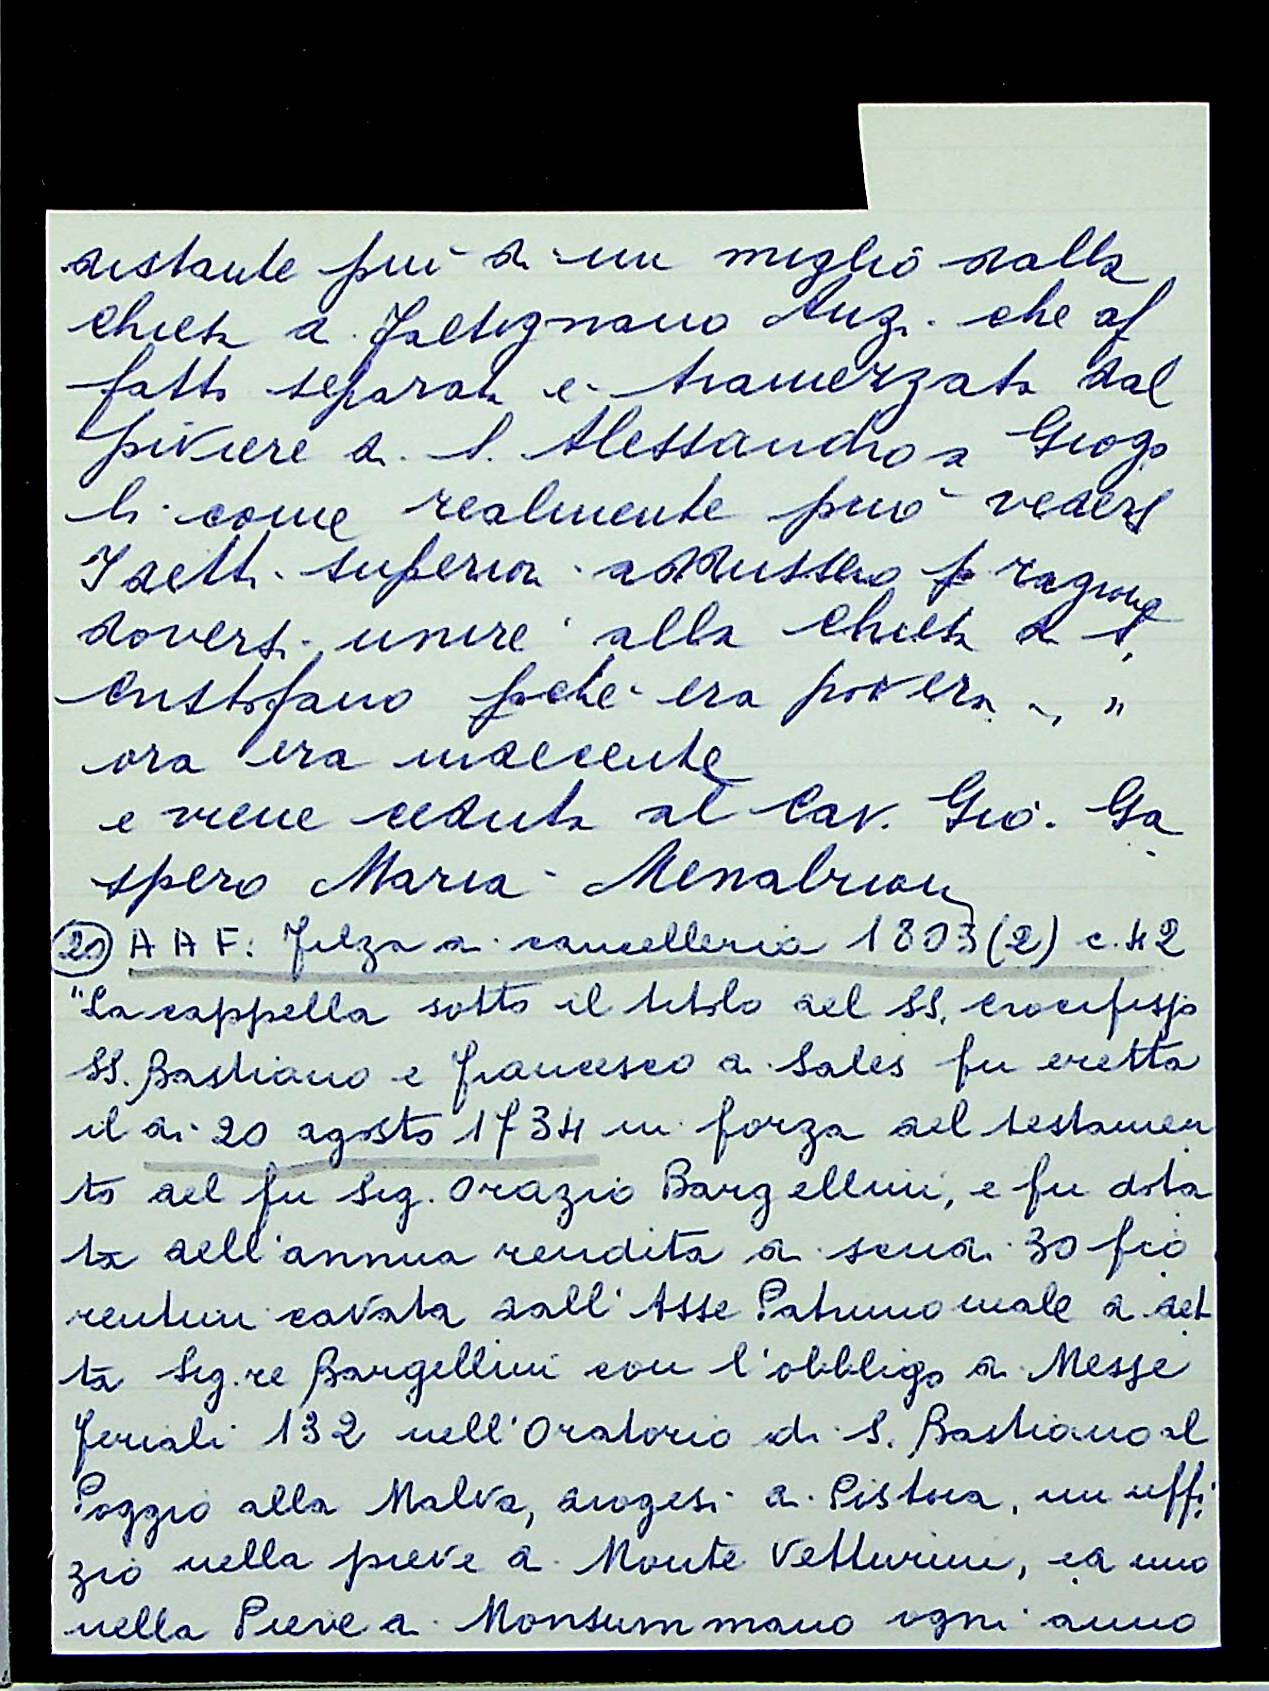 distante più di un miglio dalla
Chiesa di Faltignano Anzi che af
fatto separata e tramezzata dal
piviere di S. Alessandro a Giogo
li come realmente può vedersi
I detti superiori addussero p ragione
doversi unire alla Chiesa di S.
Cristofano pchè era povera „
ora era indecente
e viene ceduta al Cav. Gio. Ga
spero Maria Menabuoni
(20) A A F: Filza di cancelleria 1803 (2) c. 42
"La cappella sotto il titolo del SS. Crocifisso
SS. Bastiano e Francesco di Sales fu eretta
il dì 20 agosto 1734 in forza del testamen
to del fu Sig. Orazio Bargellini, e fu dota
ta dell'annua rendita di scudi 30 fio
rentini cavata dall'Asse Patrimoniale di det
to Sig.re Bargellini con l'obbligo di Messe
feriali 132 nell'Oratorio di S. Bastiano al
Poggio alla Malva, diogesi di Pistoia, un uffi
zio nella pieve di Monte Vetturini, ed uno
nella Pieve di Monsummano ogni anno